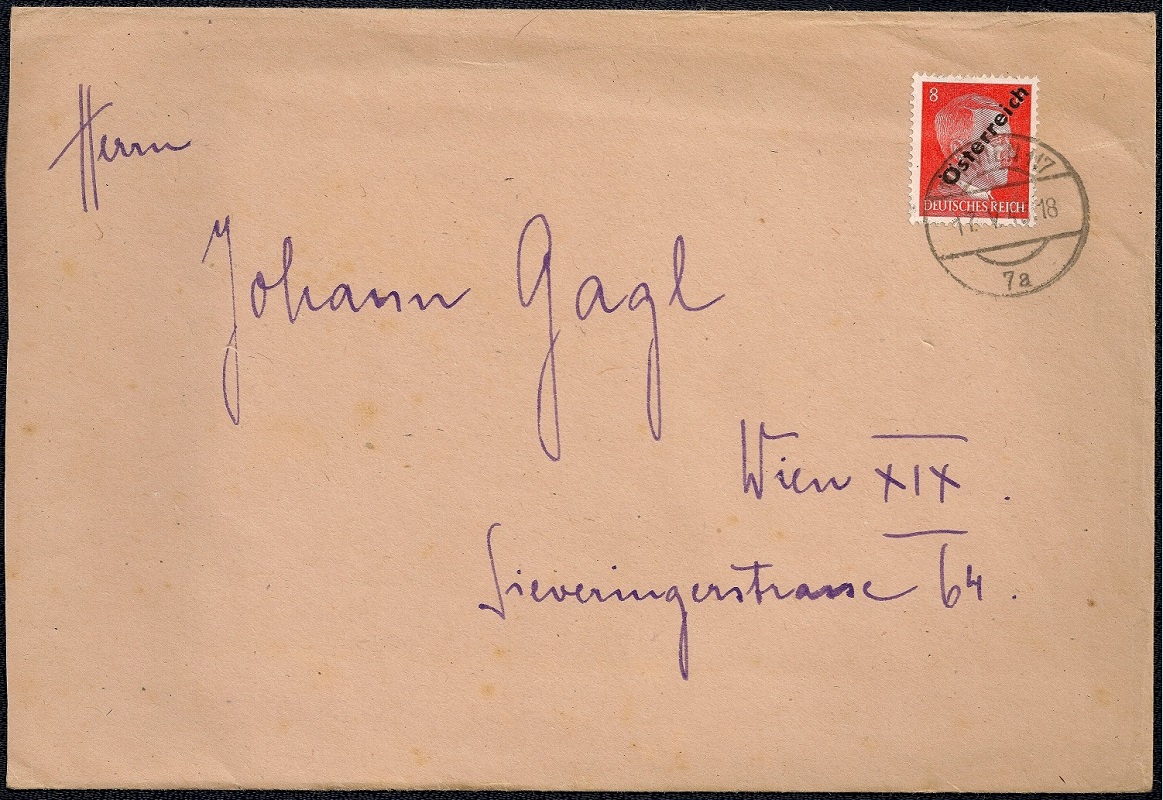 Herrn
Johann Gagl
Wien XIX.
Sieveringerstrasse 64.
8
Österreich
DEUTSCHES REICH
117
18
7a